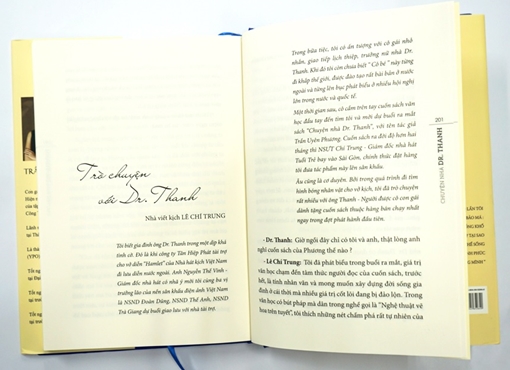 Trò chuyện
với Dr. Thanh
Nhà viết kịch LÊ CHÍ TRUNG
Tôi biết gia đình ông Dr. Thanh trong một dịp khá
tình cờ. Đó là khi công ty Tân Hiệp Phát tài trợ
cho vở diễn "Hamlet" của Nhà hát kịch Việt Nam
đi lưu diễn nước ngoài. Anh Nguyễn Thế Vinh -
Giám đốc nhà hát có nhã ý mời tôi cùng ba vị
trưởng lão của nền sân khấu điện ảnh Việt Nam
là NSND Đoàn Dũng, NSND Thế Anh, NSND
Trà Giang dự buổi giao lưu với nhà tài trợ.
Trong bữa tiệc, tôi có ấn tượng với cô gái nhỏ
nhắn, giao tiếp lịch thiệp, trưởng nữ nhà Dr.
Thanh. Khi đó tôi còn chưa biết "Cô bé" này từng
đi khắp thế giới, được đào tạo rất bài bản ở nước
ngoài và từng lên bục phát biểu ở nhiều hội nghị
lớn trong nước và quốc tế.
Một thời gian sau, cô cầm trên tay cuốn sách văn
học đầu tay đến tìm tôi và mời dự buổi ra mắt
sách "Chuyện nhà Dr. Thanh", với tên tác giả
Trần Uyên Phương. Cuốn sách ra đời độ hơn hai
tháng thì NSƯT Chí Trung - Giám đốc nhà hát
Tuổi Trẻ bay vào Sài Gòn, chính thức đặt hàng
tôi đưa tác phẩm này lên sân khấu.
Âu cũng là cơ duyên. Bởi trong quá trình đi tìm
hình bóng nhân vật cho vở kịch, tôi đã trò chuyện
rất nhiều với ông Thanh - Người được cô con gái
dành tặng cuốn sách thuộc hàng bán chạy nhất
ngay trong đợt phát hành đầu tiên.
- Dr. Thanh: Giờ ngồi đây chỉ có tôi và anh, thật lòng anh
nghĩ cuốn sách của Phương thế nào ?
- Lê Chí Trung: Tôi đã phát biểu trong buổi ra mắt, giá trị
văn học chạm đến tâm thức người đọc của cuốn sách, trước
hết, là tính nhân văn và mong muốn xây dựng đời sống gia
đình ở cái thời mà nhiều giá trị cốt lõi đang bị đảo lộn. Trong
văn học có bút pháp mà dân trong nghề gọi là "Nghệ thuật vẽ
hoa trên tuyết", tôi thích những nét chấm phá rất tự nhiên của
201
CHUYỆN NHÀ DR. THANH